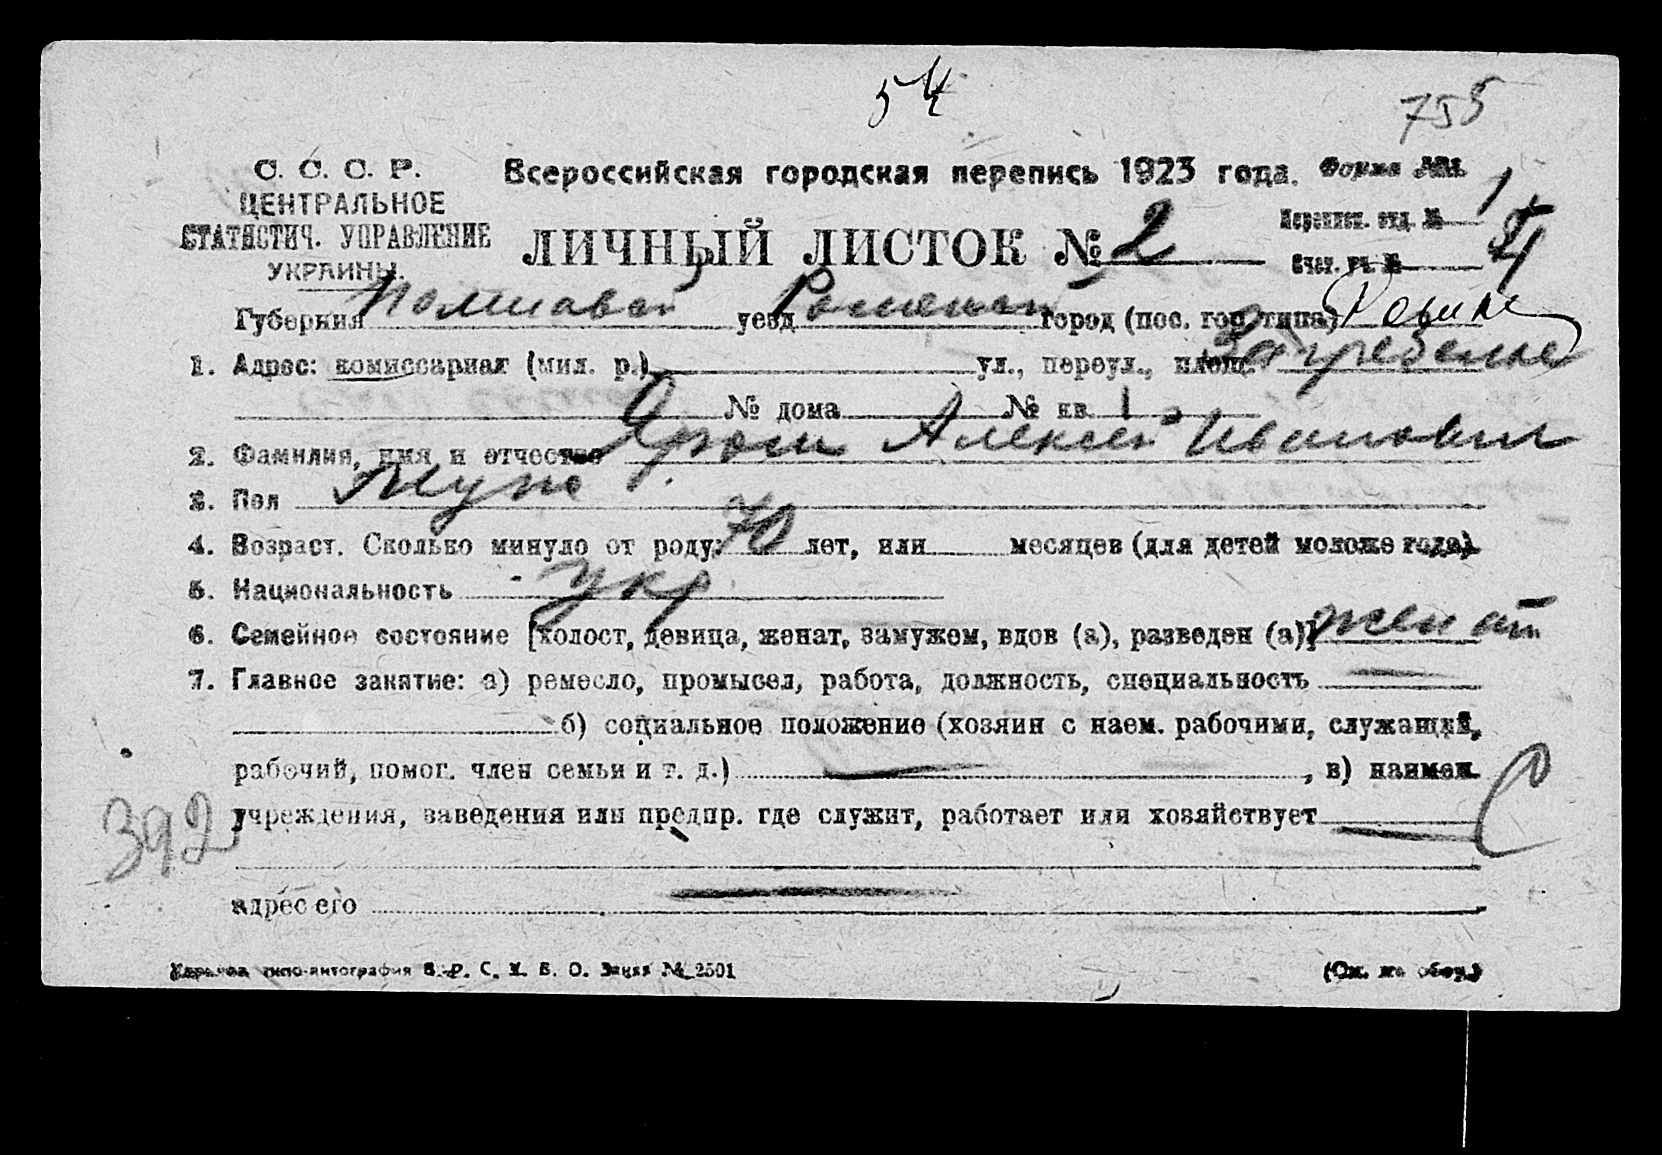 54
755
С. С. С. Р.
ЦЕНТРАЛЬНОЕ
СТАТИСТИЧ. УПРАВЛЕНИЕ
УКРАИНЫ.
Всероссийская городская перепись 1923 года. Форма №1.
ЛИЧНЫЙ ЛИСТОК № 2
Переписн. отд. № 1
Счет. уч. № 54
Губерния Полтавск уезд Роменск город (пос. гор. типа) Ромны
1. Адрес: комиссариат (мил. р.) ул., переул., площ. Загребелье
№ дома № кв. 1
2. Фамилия, имя и отчество Ярош Алексей Иванович
3. Пол Муж
4. Возраст. Сколько минуло от роду 70 лет, или месяцев (для детей моложе года).
5. Национальность укр
6. Семейное состояние [холост, девица, женат, замужем, вдов (а), разведен (а)] женат
7. Главное занятие: а) ремесло, промысел, работа, должность, специальность —
б) социальное положение (хозяин с наем. рабочими, служащий,
рабочий, помог. член семьи и т. д.) — , в) наимен.
392 учреждения, заведения или предпр. где служит, работает или хозяйствует — С
адрес его —
типо-литография С. Н. Х. О. Заказ № 2501
(См. на обор.)